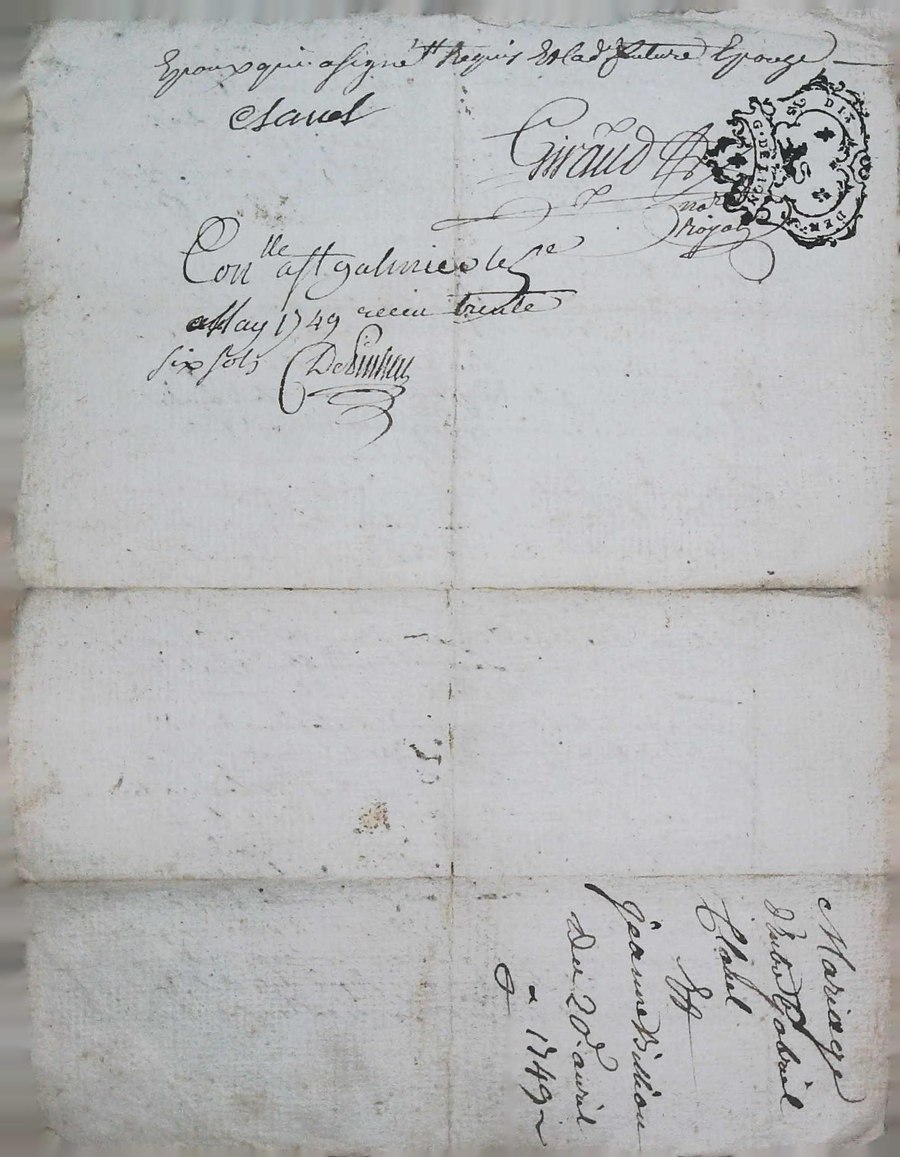 Epoux qui a signé Requis Et lad. future Epouze
Giraud
no.re
Royal
SO DIX DEN.
G. DE LION
Con.lle a St galmier le
May 1749 receu trente
six sols
Mariage
d'entre Gabriel
Et
Jeanne
Du 20.e avril
1749